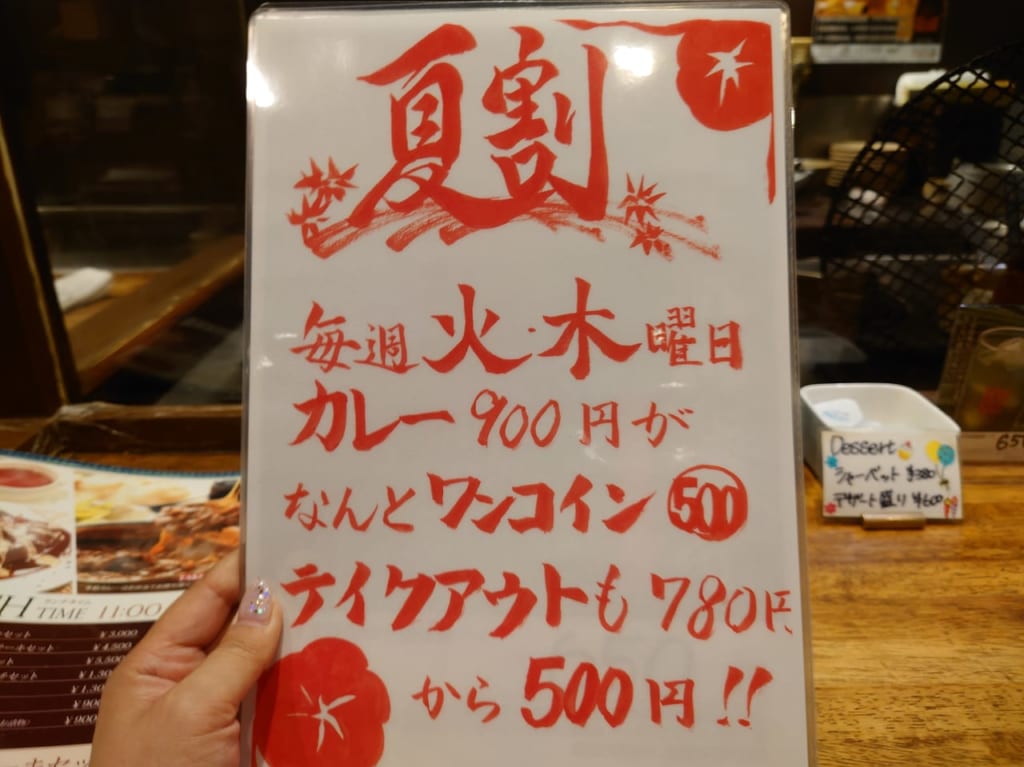 夏割
毎週火・木曜日
カレー900円が
なんとワンコイン500
テイクアウトも780円
から500円!!
Dessert
シャーベット ¥380
デザート盛り ¥600
650
TIME 11:00
¥3,000
¥4,500
¥5,500
¥1,30
¥900